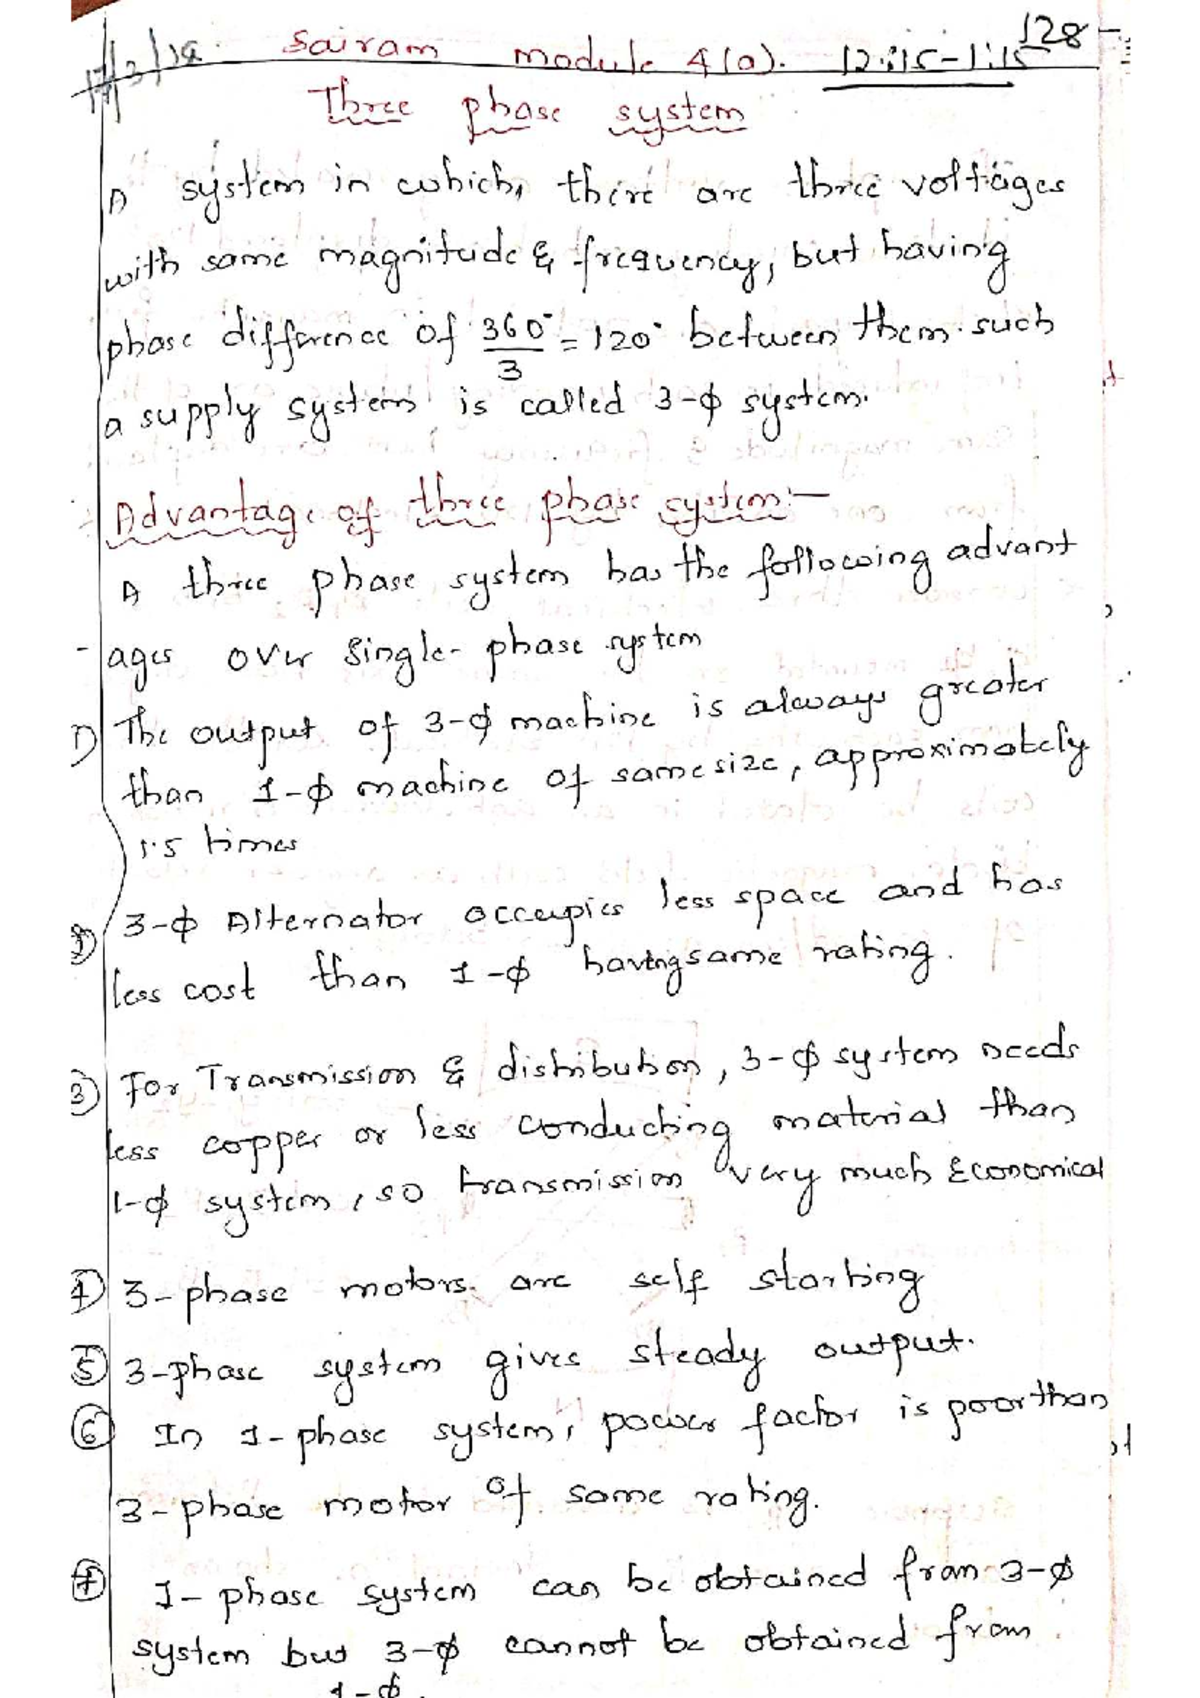 128
17/3/19 Sairam module 4(a). 12:15-1:15
Three phase system
A system in which, there are three voltages
with same magnitude & frequency, but having
phase difference of 360°/3 = 120° between them. such
a supply system is called 3-ϕ system.
Advantage of three phase system:-
A three phase system has the following advant
-ages over single-phase system
1) The output of 3-ϕ machine is always greater
than 1-ϕ machine of same size, approximately
1.5 times
3-ϕ Alternator occupies less space and has
less cost than 1-ϕ having same rating.
3) For Transmission & distribution, 3-ϕ system needs
less copper or less conducting material than
1-ϕ system, so transmission very much Economical
4) 3-phase motors. are self starting
5) 3-phase system gives steady output.
6) In 1-phase system, power factor is poor than
3-phase motor of same rating.
7) 1-phase system can be obtained from 3-ϕ
system but 3-ϕ cannot be obtained from
1-ϕ.